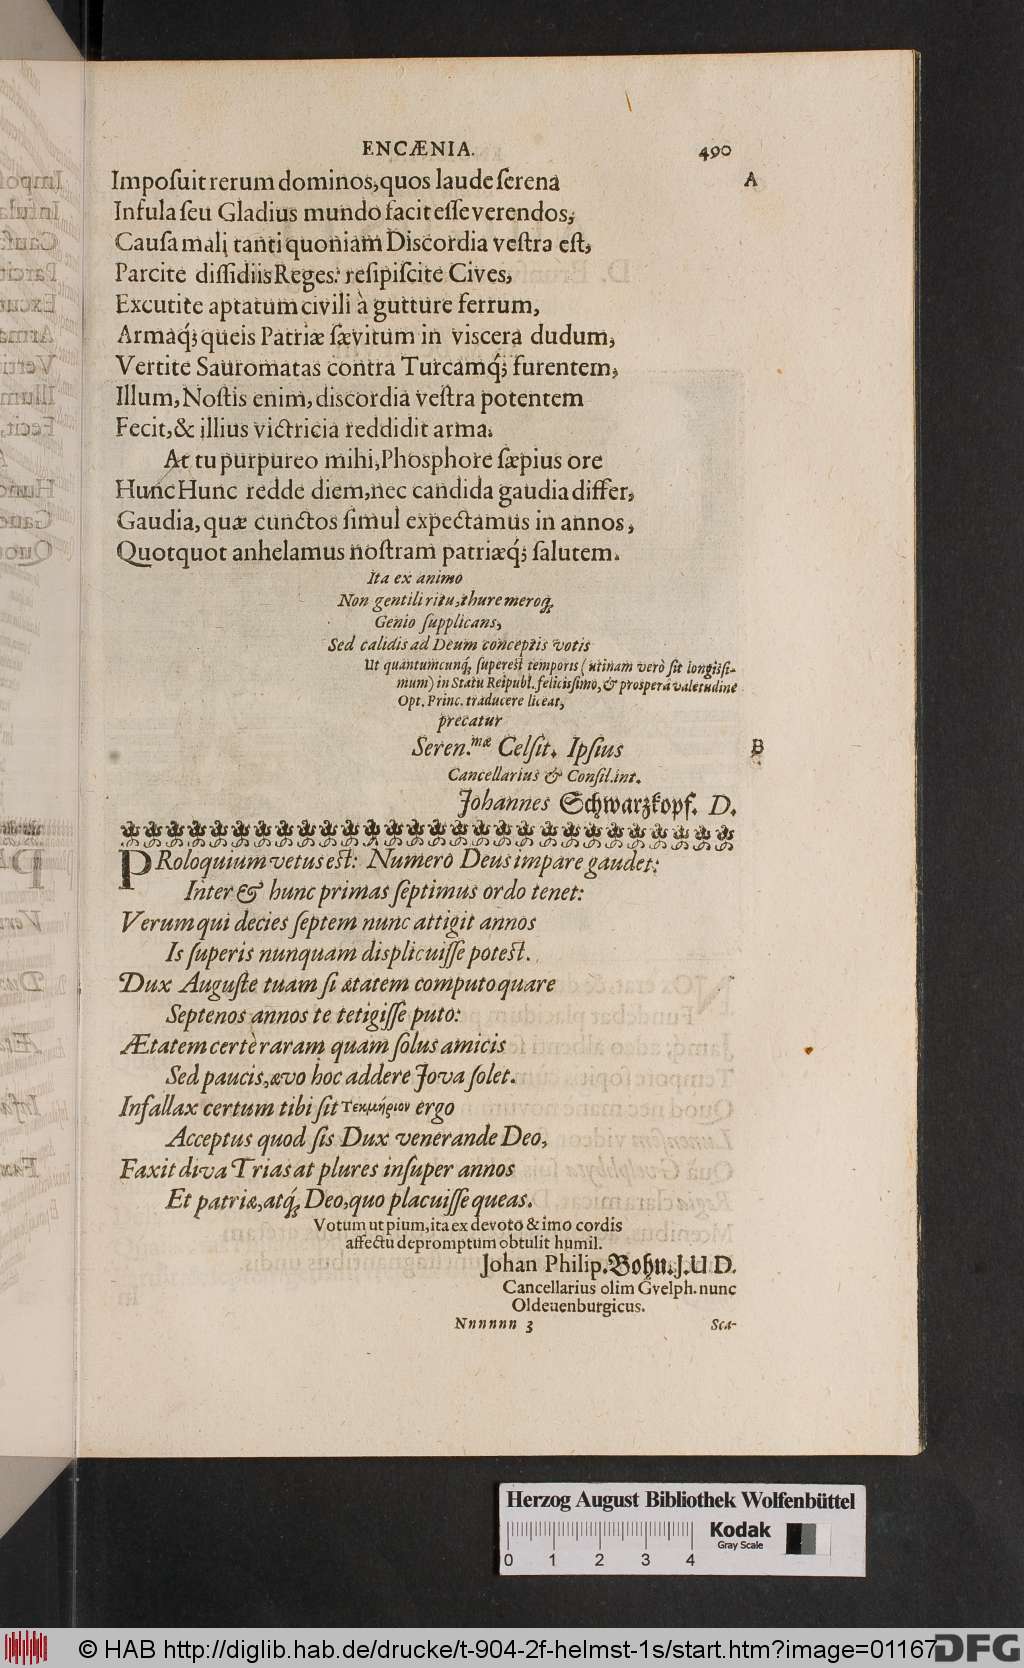 ENCÆNIA. 490
Impoſuit rerum dominos, quos laude ſerena A
Infula ſeu Gladius mundo facit eſſe verendos,
Cauſa mali tanti quoniam Discordia veſtra eſt,
Parcite diſſidiis Reges: reſipiſcite Cives,
Excutite aptatum civili à gutture ferrum,
Armaq́; queis Patriæ ſævitum in viscera dudum,
Vertite Sauromatas contra Turcamq́; furentem,
Illum, Noſtis enim, discordia veſtra potentem
Fecit, & illius victricia reddidit arma.
At tu purpureo mihi, Phosphore ſæpius ore
Hunc Hunc redde diem, nec candida gaudia differ,
Gaudia, quæ cunctos ſimul expectamus in annos,
Quotquot anhelamus noſtram patriæq́; ſalutem.
Ita ex animo
Non gentili ritu, thure meroq́;
Genio ſupplicans,
Sed calidis ad Deum conceptis votis
Ut quantumcunq́; ſupereſt temporis (utinam verò ſit longiſſi-
mum) in Statu Reipubl. feliciſſimo, & prospera valetudine
Opt. Princ. traducere liceat,
precatur
Seren.mæ Celſit. Ipſius B
Cancellarius & Conſil. int.
Johannes Schwarzkopf. D.
PRoloquium vetus eſt: Numerò Deus impare gaudet:
Inter & hunc primas ſeptimus ordo tenet:
Verum qui decies ſeptem nunc attigit annos
Is ſuperis nunquam displicuiſſe poteſt.
Dux Auguſte tuam ſi ætatem computo quare
Septenos annos te tetigiſſe puto:
Ætatem certè raram quam ſolus amicis
Sed paucis, ævo hoc addere Jova ſolet.
Infallax certum tibi ſit Τεκμήριον ergo
Acceptus quod ſis Dux venerande Deo,
Faxit diva Trias at plures inſuper annos
Et patriæ, atq́; Deo, quo placuiſſe queas.
Votum ut pium, ita ex devoto & imo cordis
affectu depromptum obtulit humil.
Johan Philip. Bohn. J. U. D.
Cancellarius olim Gvelph. nunc
Oldeuenburgicus.
Nnnnnn 3 Sca-
Herzog August Bibliothek Wolfenbüttel
Kodak
Gray Scale
0 1 2 3 4
© HAB http://diglib.hab.de/drucke/t-904-2f-helmst-1s/start.htm?image=01167
DFG